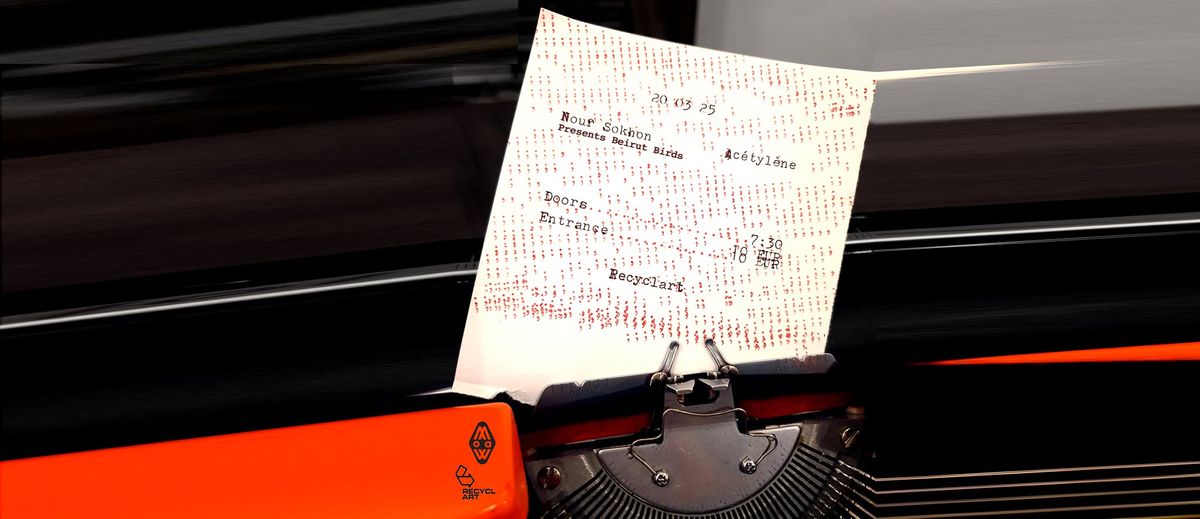 20 03 25
Nour Sokhon
Presents Beirut Birds
Acétylène
Doors 7:30
Entrance 10 EUR
10 EUR
Recyclart
MoaW
RECYCL
ART